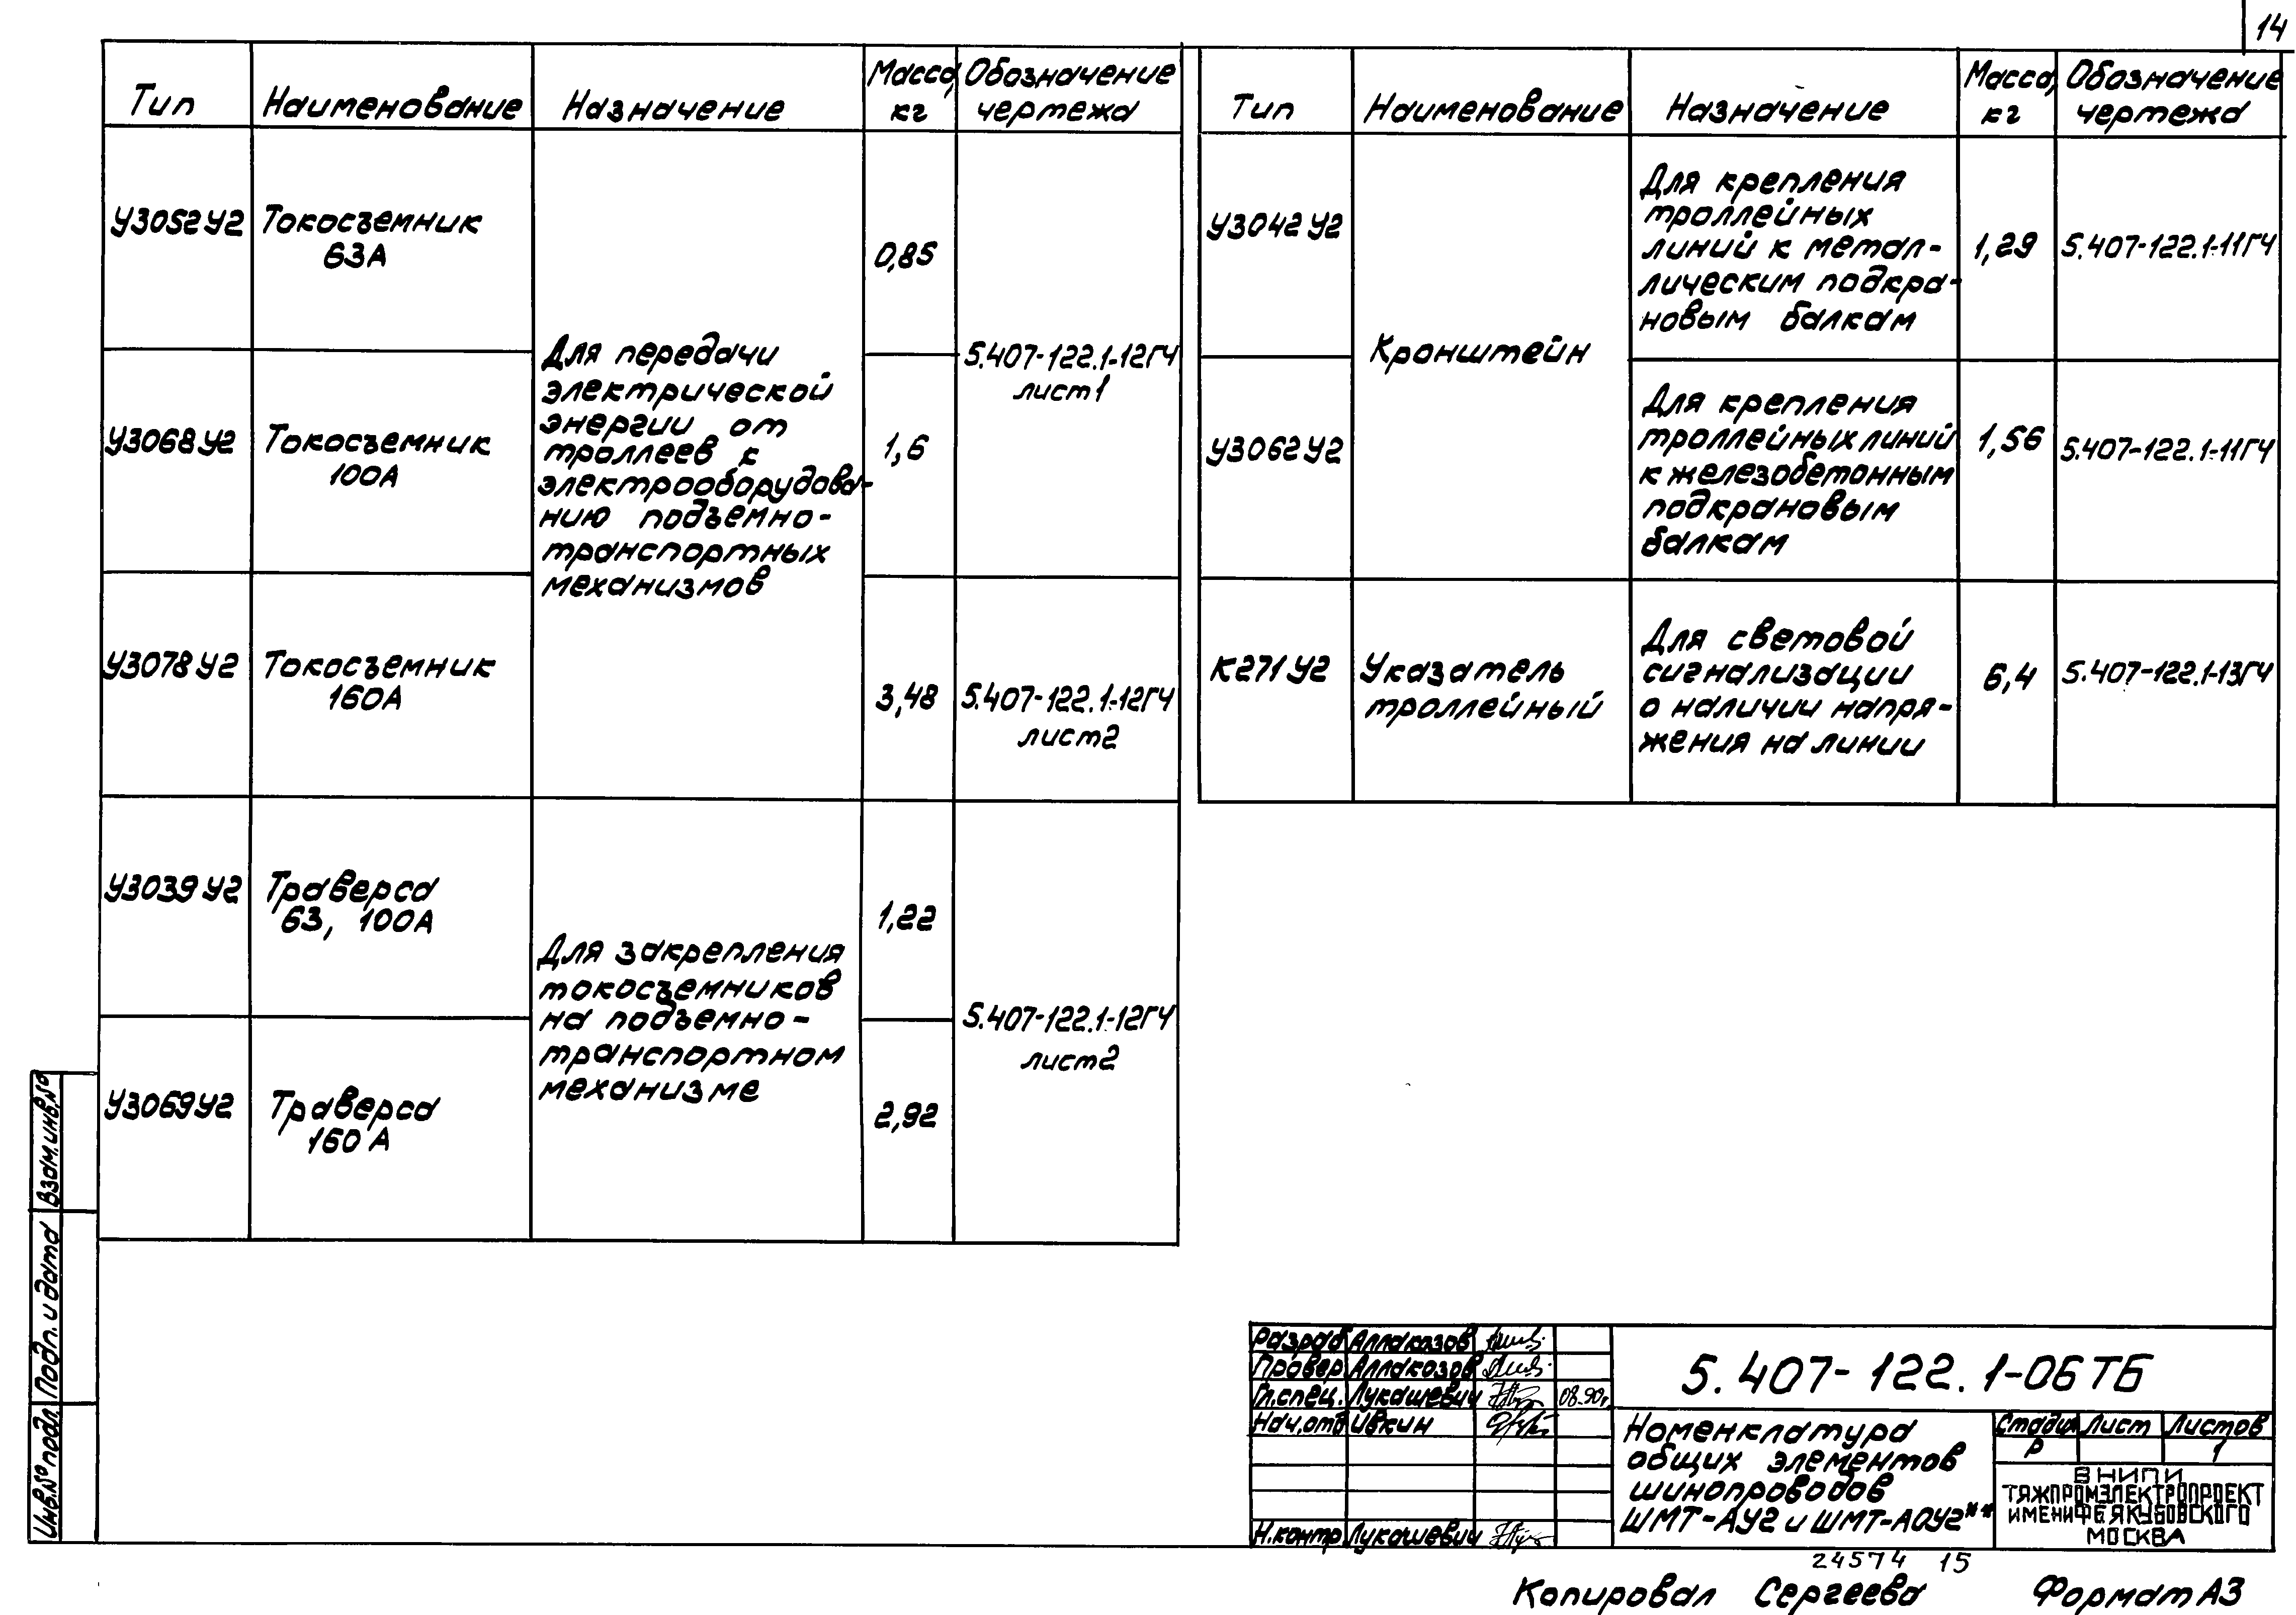 14
Тип Наименование Назначение Масса, кг Обозначение чертежа
У3052У2 Токосъемник 63А
0,85
Для передачи
электрической
энергии от
троллеев к
электрооборудова-
нию подъемно-
транспортных
механизмов
5.407-122.1-12ГЧ
лист1
У3068У2 Токосъемник 100А
1,6
У3078У2 Токосъемник 160А
3,48
5.407-122.1-12ГЧ
лист2
У3039У2 Траверса 63, 100А
1,22
Для закрепления
токосъемников
на подъемно-
транспортном
механизме
5.407-122.1-12ГЧ
лист2
У3069У2 Траверса 160А
2,92
Тип Наименование Назначение Масса, кг Обозначение чертежа
У3042У2
Кронштейн
Для крепления
троллейных
линий к метал-
лическим подкра-
новым балкам
1,29
5.407-122.1-11ГЧ
У3062У2
Для крепления
троллейных линий
к железобетонным
подкрановым
балкам
1,56
5.407-122.1-11ГЧ
К271У2
Указатель
троллейный
Для световой
сигнализации
о наличии напря-
жения на линии
6,4
5.407-122.1-13ГЧ
Взам.инв.№
Подп. и дата
Инв.№ подл.
Разраб Аллакозов
Провер Аллакозов
Гл.спец. Лукашевич 08.90г.
Нач.отд Ивкин
Н.контр Лукашевич
5.407-122.1-06ТБ
Номенклатура
общих элементов
шинопроводов
ШМТ-АУ2 и ШМТ-АОУ2**
Стадия Лист Листов
Р 1
ВНИПИ
ТЯЖПРОМЭЛЕКТРОПРОЕКТ
ИМЕНИ Ф.Б.ЯКУБОВСКОГО
МОСКВА
24574 15
Копировал Сергеева Формат А3